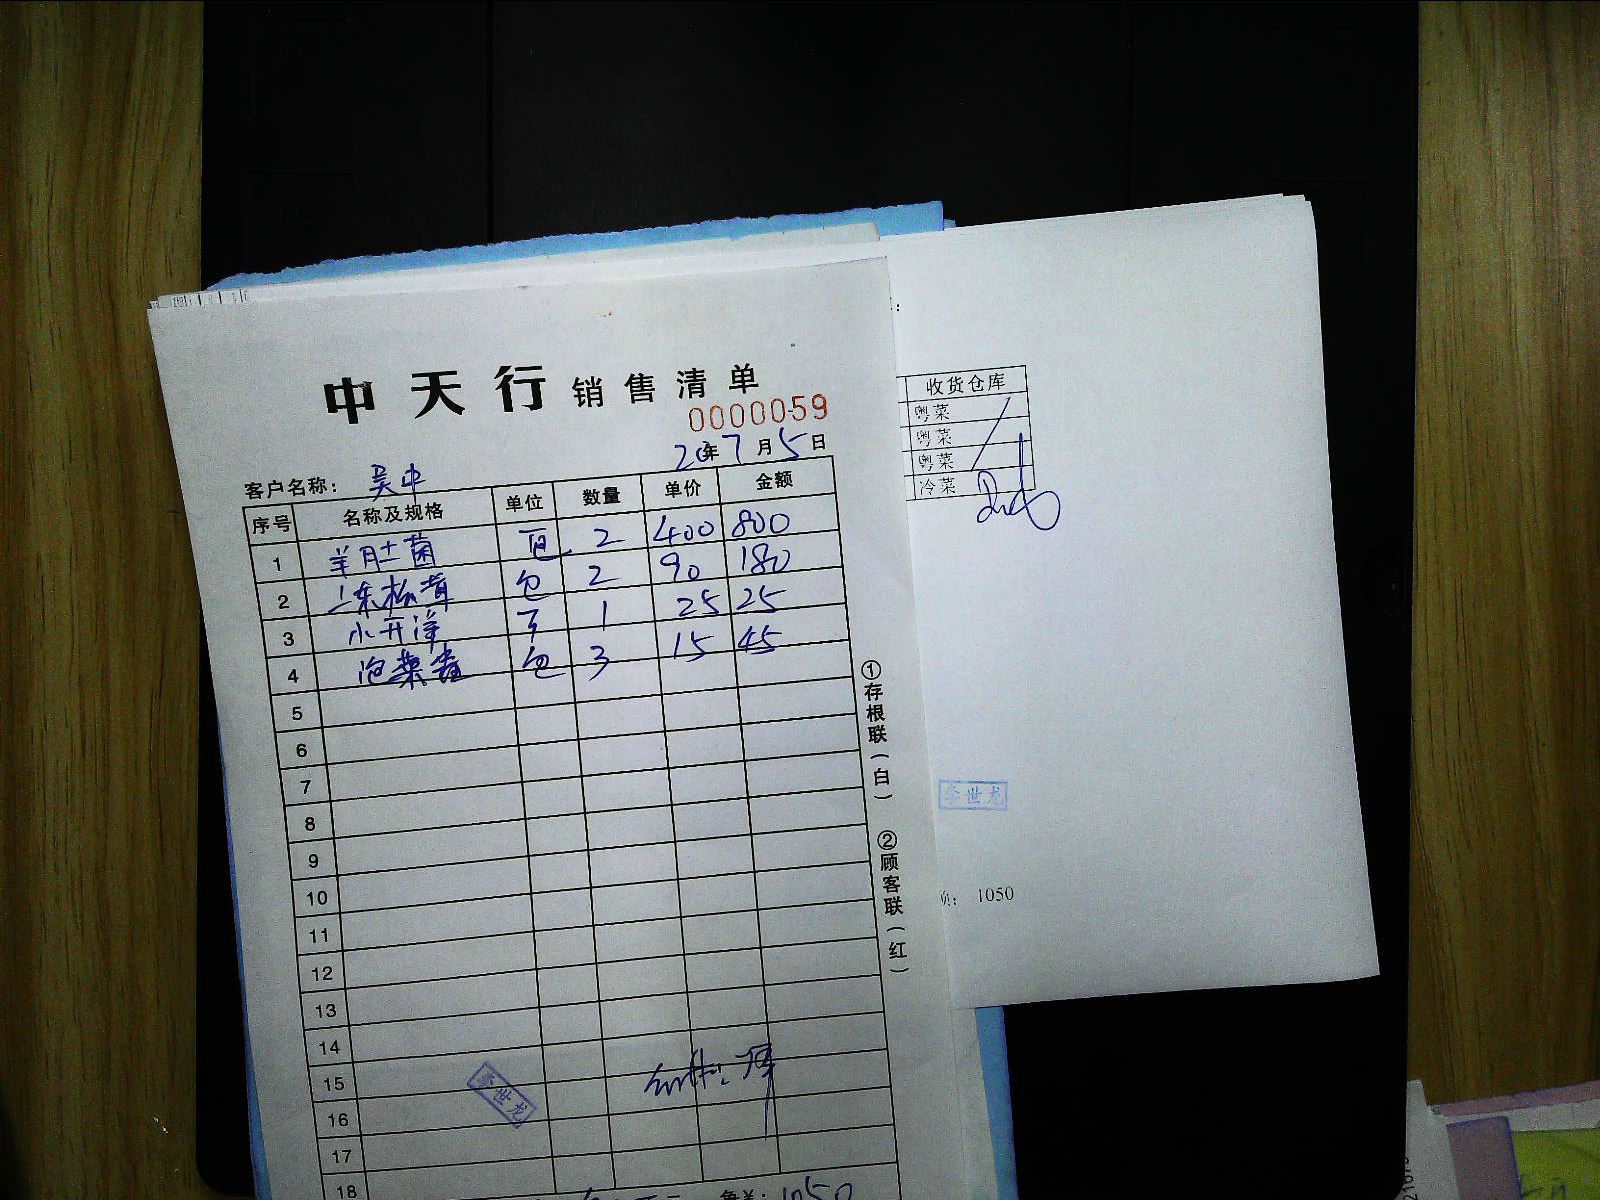 中天行销售清单
0000059
20年7月5日
客户名称： 吴中
序号 名称及规格 单位 数量 单价 金额
1 羊肚菌 包 2 400 800
2 松茸 包 2 90 180
3 小开洋 1 25 25
4 泡菜 包 3 15 45
5
6
7
8
9
10
11
12
13
14
15
16
17
18
1050
李世龙
①存根联（白）
②顾客联（红）
收货仓库
粤菜
粤菜
粤菜
冷菜
李世龙
1050